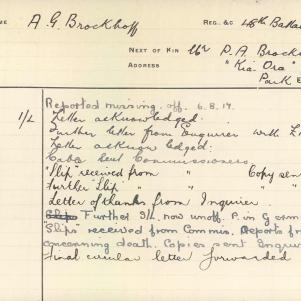 ME A G Brockhoff REG. &C 48th Batta
NEXT OF KIN Mr P. A. Brock
ADDRESS "Kia Ora"
Park E
Reported missing. off. 6.8.17.
1/L Letter acknowledged.
Further letter from Enquirer with
Letter acknowledged.
Cable sent Commissioners
"Slip" received from " Copy sen
Further "Slip" " "
Letter of thanks from Inquirer.
Further Slt. now unoff. P. in Germ
"Slips" received from Commis. Reports fr
concerning death. Copies sent Enquire
Final circular letter forwarded